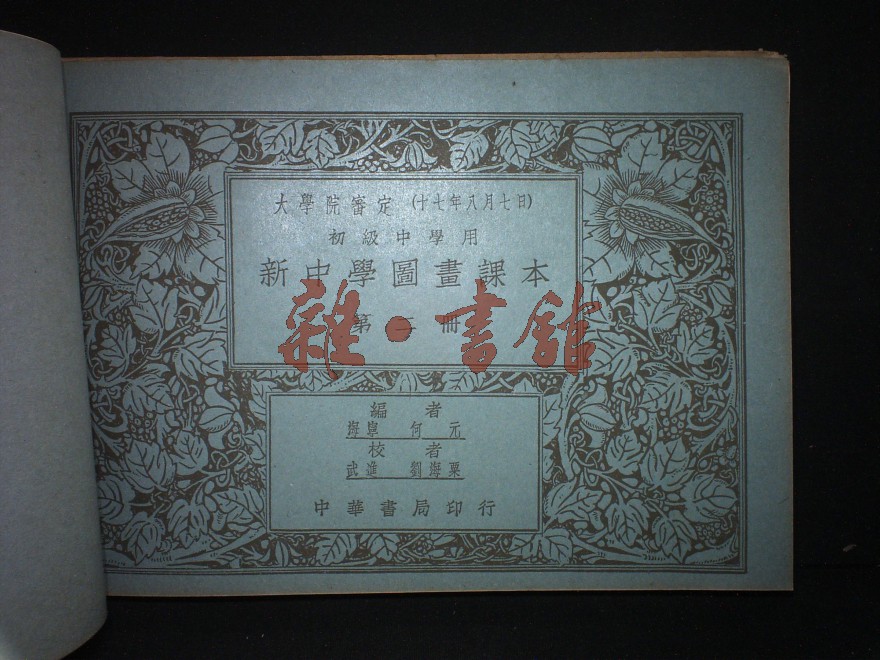 大學院審定 (十七年八月七日)
初級中學用
新中學圖畫課本
第二冊
雜·書館
編者
海寧 何元
校者
武進 劉海粟
中華書局印行